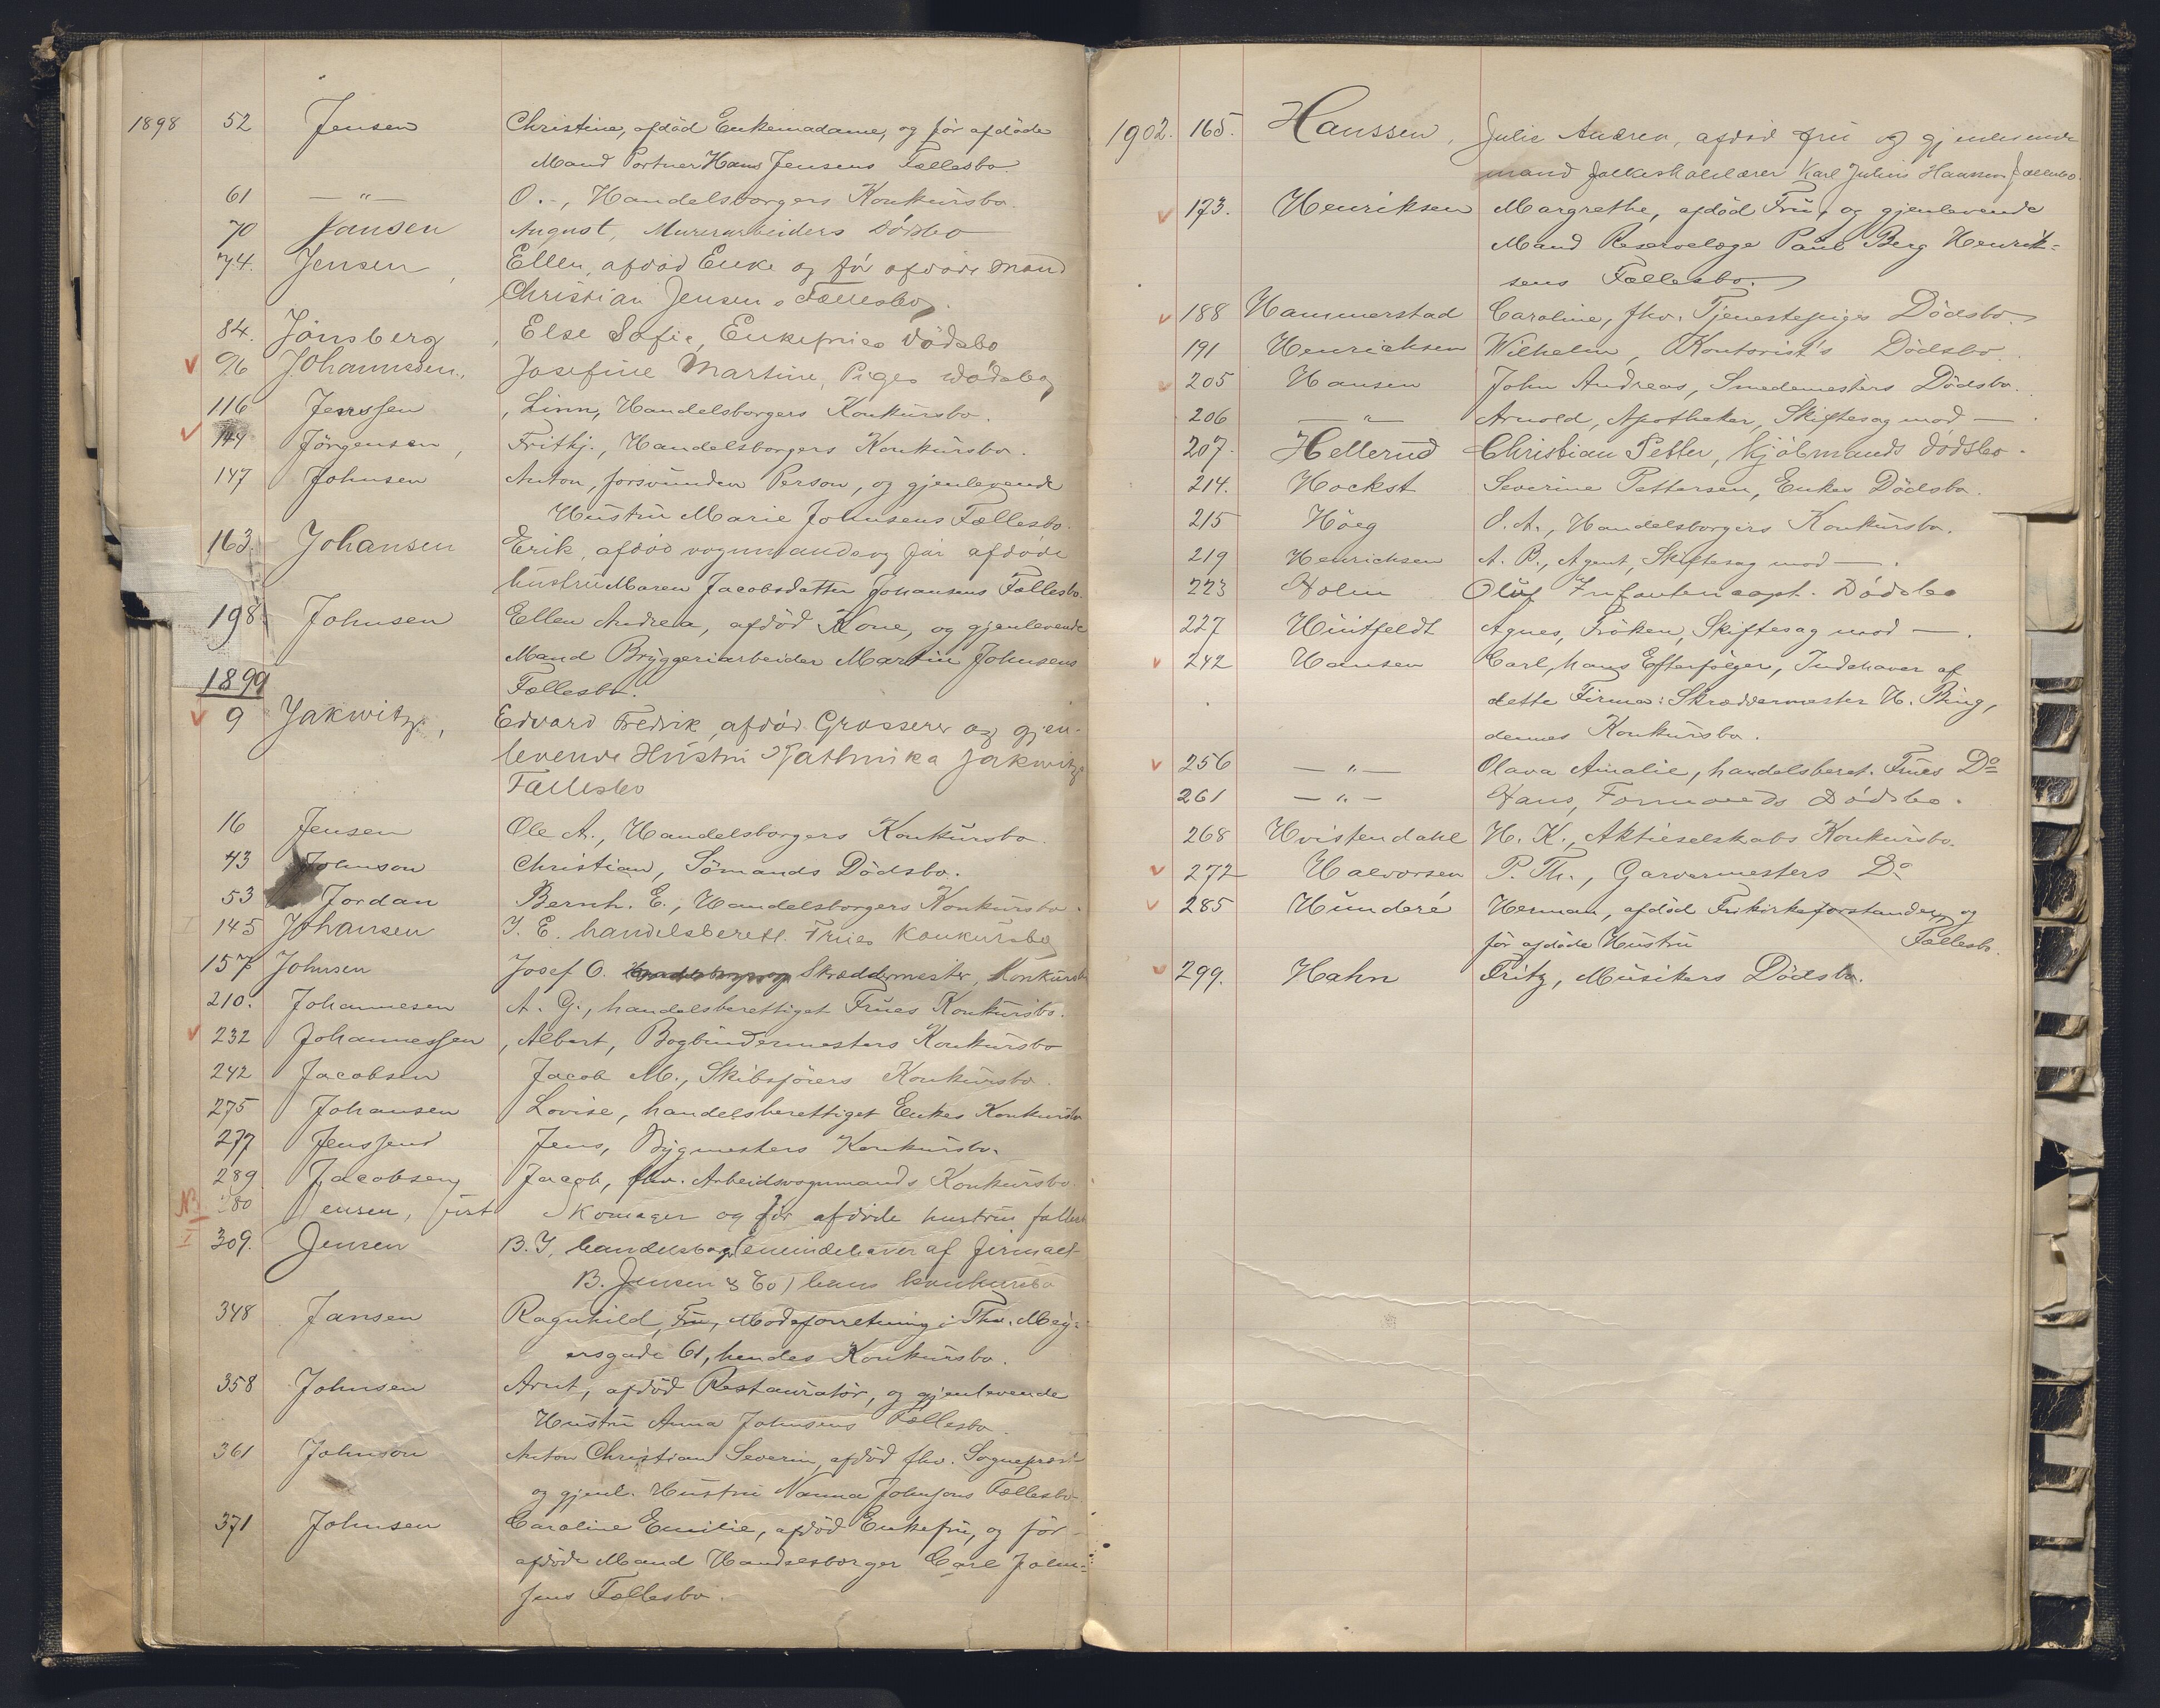 1898 52 Jensen Christine, afdöd Enkemadame, og för afdöde
Mand Portner Hans Jensens Fællesbo
61 — " — O. -, Handelsborgers Konkursbo.
70 Jansen August, Murerarbeiders Dödsbo
74. Jensen, Ellen, afdöd Enke og för afdöde Mand
Christian Jensens Fællesbo.
84. Jönsberg, Else Sofie, Enkefrues Dödsbo
v 96 Johannesen, Josefine Martine, Piges Dödsbo
116 Jenssen, Linn, Handelsborgers Konkursbo.
v 144 Jörgensen, Frithj., Handelsborgers Konkursbo.
147 Johnsen Anton, forsvunden Person, og gjenlevende
Hustru Marie Johnsens Fællesbo.
163. Johansen Erik, afdöd vognmand og för afdöde
hustru Maren Jacobsdatter Johansens Fællesbo.
198 Johnsen Ellen Andrea, afdöd Kone, og gjenlevende
Mand Bryggeriarbeider Martin Johnsens
Fællesbo.
1899
v 9 Jakwitz, Edvard Fredrik, afdöd Grosserer og gjen-
levende Hustru Kathinka Jakwitz
Fællesbo
16 Jensen Ole A., Handelsborgers Konkursbo.
43 Johnson Christian, Sömands Dödsbo.
53 Jordan Bernh. E., Handelsborgers Konkursbo.
145 Johansen J. E. handelsberett. Frues Konkursbo
157 Johnsen Josef O. Skræddermester, Konkursbo
210. Johannesen A. G., handelsberettiget Frues Konkursbo.
v 232 Johannessen, Albert, Bogbindermesters Konkursbo
242 Jacobsen Jacob M., Skibsförers Konkursbo.
275 Johansen Lovise, handelsberettiget Enkes Konkursbo
277 Jenssen Jens, Bygmesters Konkursbo.
289 Jacobsen Jacob, fhv. Arbeidsvognmands Konkursbo.
NB 80 ensen, Skomager og för afdöde hustru fælles
309. Jensen B. J. handelsborger (eneindehaver af firmaet
B. Jensen & Co) hans konkursbo
348 Jansen Ragnhild, Fru, Modeforretning i Thv. Mey-
ersgade 61, hendes Konkursbo.
358 Johnsen Arnt, afdöd Restauratör, og gjenlevende
Hustru Anna Johnsens Fællesbo
361 Johnson Anton Christian Severin, afdöd fhv. Sogneprest
og gjenl. Hustru Nanna Johnsons Fællesbo
371 Johnsen Caroline Emilie, afdöd Enkefru, og för
afdöde Mand Handelsborger Carl John-
sens Fællesbo.
1902. 165. Hanssen, Julie Andrea, afdöd fru og gjenlevende
mand folkeskolelærer Karl Julius Hanssens Fællesbo.
v 173. Henriksen Margrethe, afdöd Fru, og gjenlevende
Mand Reservelæge Paul Berg Henrik-
sens Fællesbo.
v 188 Hammerstad Caroline, fhv. Tjenestepiges Dödsbo.
191 Henrichsen Wilhelm, Kontorist's Dödsbo.
v 205 Hansen John Andreas, Smedemesters Dödsbo.
206 — " — Arnold, Apotheker, Skiftesag mod — .
207. Hellerud Christian Petter, Kjöbmands Dödsbo.
214. Hockst Severine Pettersen, Enkes Dödsbo.
215 Höeg O. A., Handelsborgers Konkursbo.
219 Henrichsen A. B., Agent, Skiftesag mod — .
223 Holm Oluf Infantericapt. Dödsbo
227 Huitfeldt Agnes, Fröken, Skiftesag mod — .
v 242 Hansen Carl, hans Efterfölger, Indehaver af
dette Firma: Skræddermester H. Bing,
dennes Konkursbo.
v 256 — " — Olava Amalie, handelsberet. Frues Do
261 — " — Hans, Formands Dödsbo.
268 Hvistendahl H. K., Aktieselskabs Konkursbo.
v 272 Halvorsen P. Th., Garvermesters Do
v 285 Hunderé Herman, afdöd Frikirkeforstander, og
för afdöde Hustru Fællesbo.
v 299. Hahn Fritz, Musikers Dödsbo.